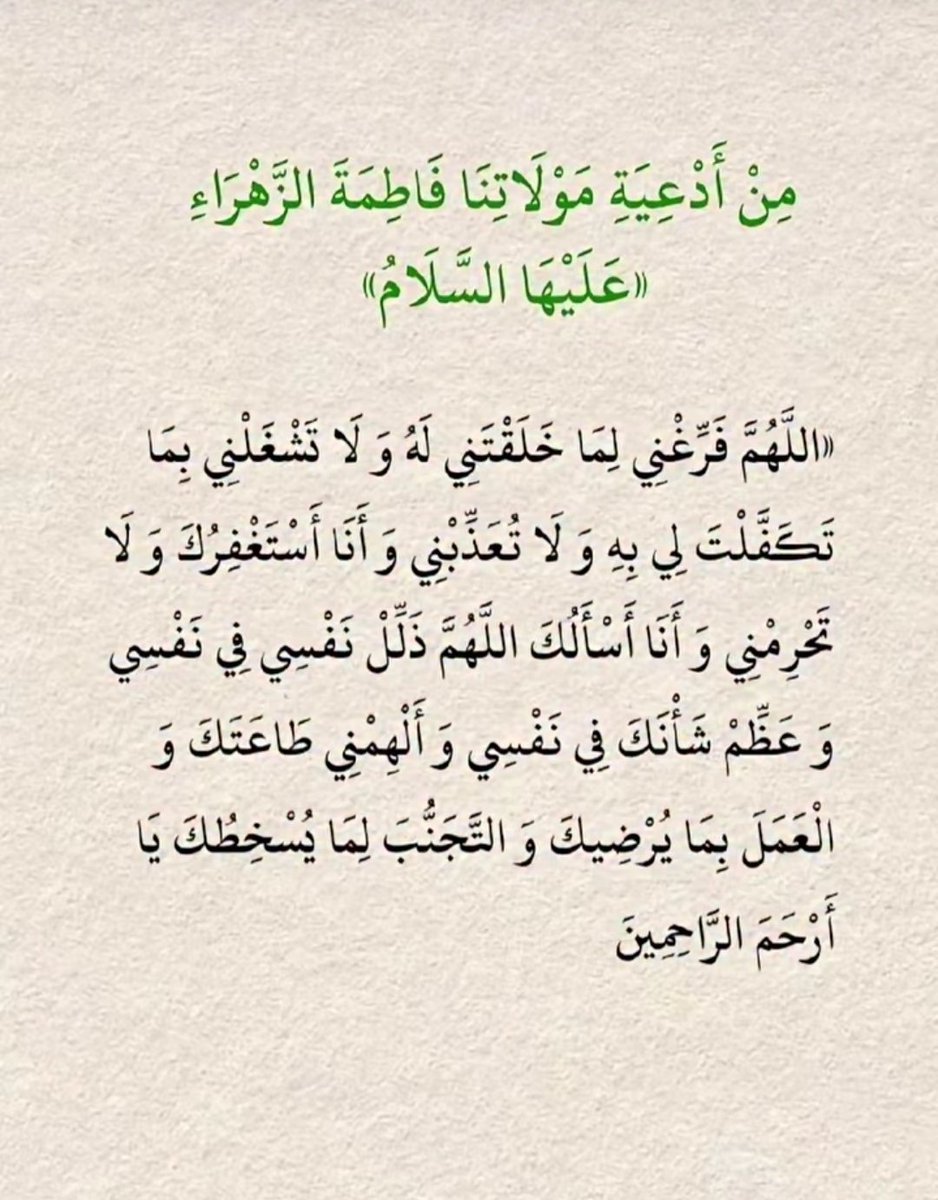 مِنْ أَدْعِيَةِ مَوْلَاتِنَا فَاطِمَةَ الزَّهْرَاءِ
«عَلَيْهَا السَّلَامُ»
«اللَّهُمَّ فَرِّغْنِي لِمَا خَلَقْتَنِي لَهُ وَ لَا تَشْغَلْنِي بِمَا
تَكَفَّلْتَ لِي بِهِ وَ لَا تُعَذِّبْنِي وَ أَنَا أَسْتَغْفِرُكَ وَ لَا
تَحْرِمْنِي وَ أَنَا أَسْأَلُكَ اللَّهُمَّ ذَلِّلْ نَفْسِي فِي نَفْسِي
وَ عَظِّمْ شَأْنَكَ فِي نَفْسِي وَ أَلْهِمْنِي طَاعَتَكَ وَ
الْعَمَلَ بِمَا يُرْضِيكَ وَ التَّجَنُّبَ لِمَا يُسْخِطُكَ يَا
أَرْحَمَ الرَّاحِمِينَ